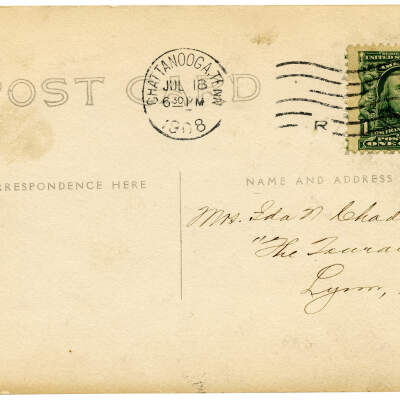 POST CARD
CHATTANOOGA, TENN.
JUL 18
6 30 PM
1908
R
UNITED STATES
AME
ONE
CORRESPONDENCE HERE
NAME AND ADDRESS
Mrs. Ida N Chad
"The Tourai
Lynn,